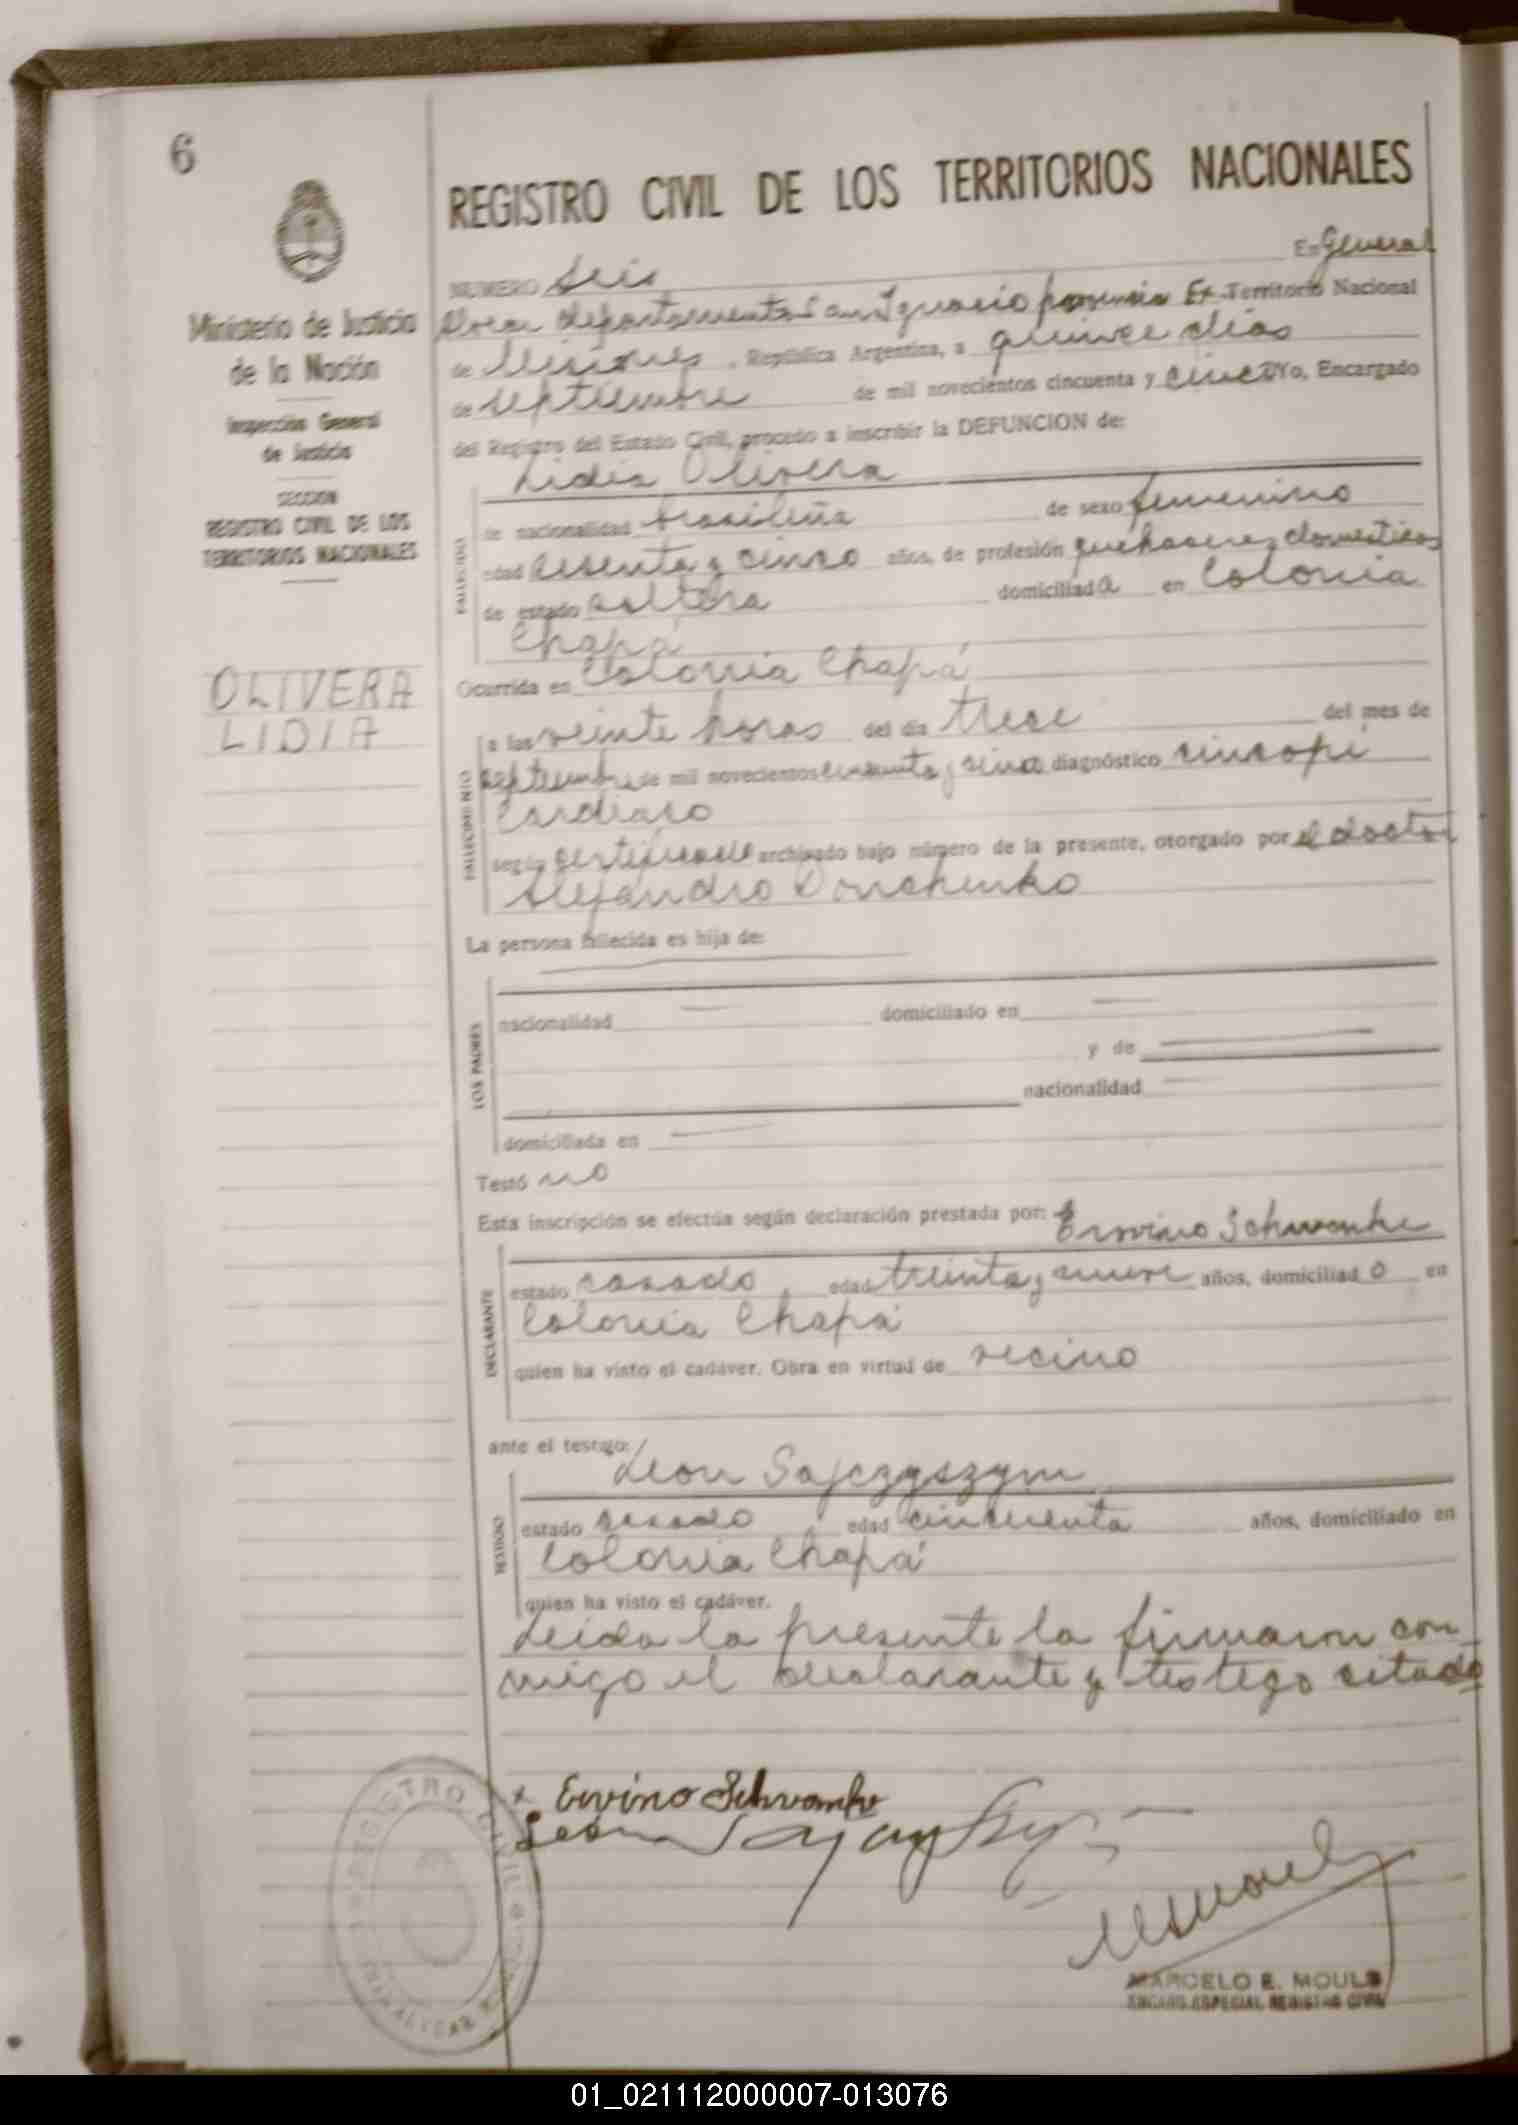 6
REGISTRO CIVIL DE LOS TERRITORIOS NACIONALES
Ministerio de Justicia
de la Nación
Inspección General
de Justicia
SECCION
REGISTRO CIVIL DE LOS
TERRITORIOS NACIONALES
OLIVERA
LIDIA
NUMERO Seis En General
Alvear departamento San Ignacio provincia Ex Territorio Nacional
de Misiones, República Argentina, a quince días
de septiembre de mil novecientos cincuenta y cinco Yo, Encargado
del Registro del Estado Civil, procedo a inscribir la DEFUNCION de:
Lidia Olivera
FALLECIDO
de nacionalidad brasileña de sexo femenino
edad sesenta y cinco años, de profesión quehaceres domesticos
de estado soltera domiciliada en Colonia
Chapá
Ocurrida en Colonia Chapá
FALLECIMIENTO
a las veinte horas del día trece del mes de
septiembre de mil novecientos cincuenta y cinco diagnóstico sincopi
Cardiaco
según certificado archivado bajo número de la presente, otorgado por el doctor
Alejandro Donchenko
La persona fallecida es hija de:
LOS PADRES
nacionalidad domiciliado en
y de
nacionalidad
domiciliada en
Testó no
Esta inscripción se efectúa según declaración prestada por: Ervino Schwonke
DECLARANTE
estado casado edad treinta y nueve años, domiciliado en
Colonia Chapá
quien ha visto el cadáver. Obra en virtud de vecino
ante el testigo:
Leon Sajczyszyn
TESTIGO
estado casado edad cincuenta años, domiciliado en
Colonia Chapá
quien ha visto el cadáver.
Leida la presente la firmaron con
migo el declarante y testigo citado
x Ervino Schwonke
Leon
REGISTRO CIVIL
MARCELO E. MOULS
ENCARG. ESPECIAL REGISTRO CIVIL
01_021112000007-013076